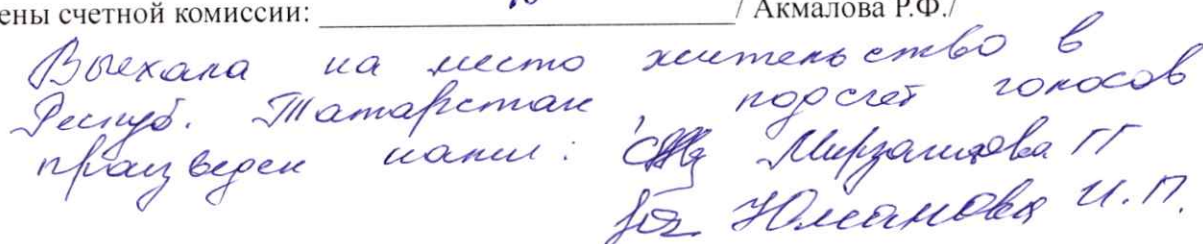 ены счетной комиссии: / Акмалова Р.Ф./
Выехала на место жительство в
Респуб. Татарстан, подсчет голосов
произведен нами: Мирзаитова ГГ
Юманова И.П.